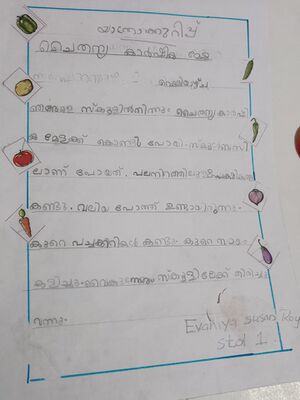 യാത്രാക്കുറിപ്പ്
ചൈതന്യ കാർഷിക മേള
വെള്ളിയാഴ്ച
ഞങ്ങളുടെ സ്കൂളിൽനിന്നും ചൈതന്യ കാർഷി
ക മേളക്ക് കൊണ്ടു പോയി. സ്കൂൾ ബസി
ലാണ് പോയത്. പലനിറത്തിലുള്ള പക്ഷികളെ
കണ്ടു. വലിയ പോത്ത് ഉണ്ടായിരുന്നു.
കുറെ പച്ചക്കറികൾ കണ്ടു. കുറെ സമയം
കളിച്ചു. വൈകുന്നേരം സ്കൂളിലേക്ക് തിരിച്ചു
വന്നു.
Evaniya Susan Roy
std 1